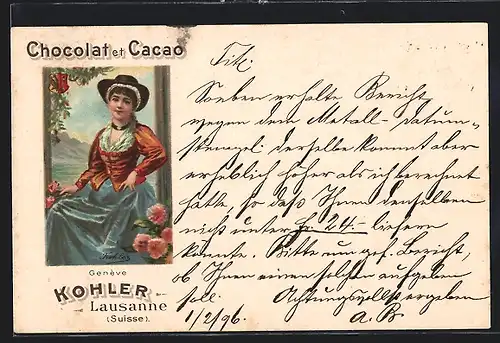 Chocolat et Cacao
Genève
KOHLER
Lausanne
(Suisse).
Soeben erhalte Bericht
wegen dem Metall-Datum-
stempel. derselbe kommt aber
erheblich höher als ich berechnet
hätte, so daß ich Ihnen denselben
nicht unter 24.- liefern
konnte. Bitte um gef. Bericht,
ob Ihnen einen solchen aufgeben
soll. Achtungsvollst ergeben
1/2/96. A. B.